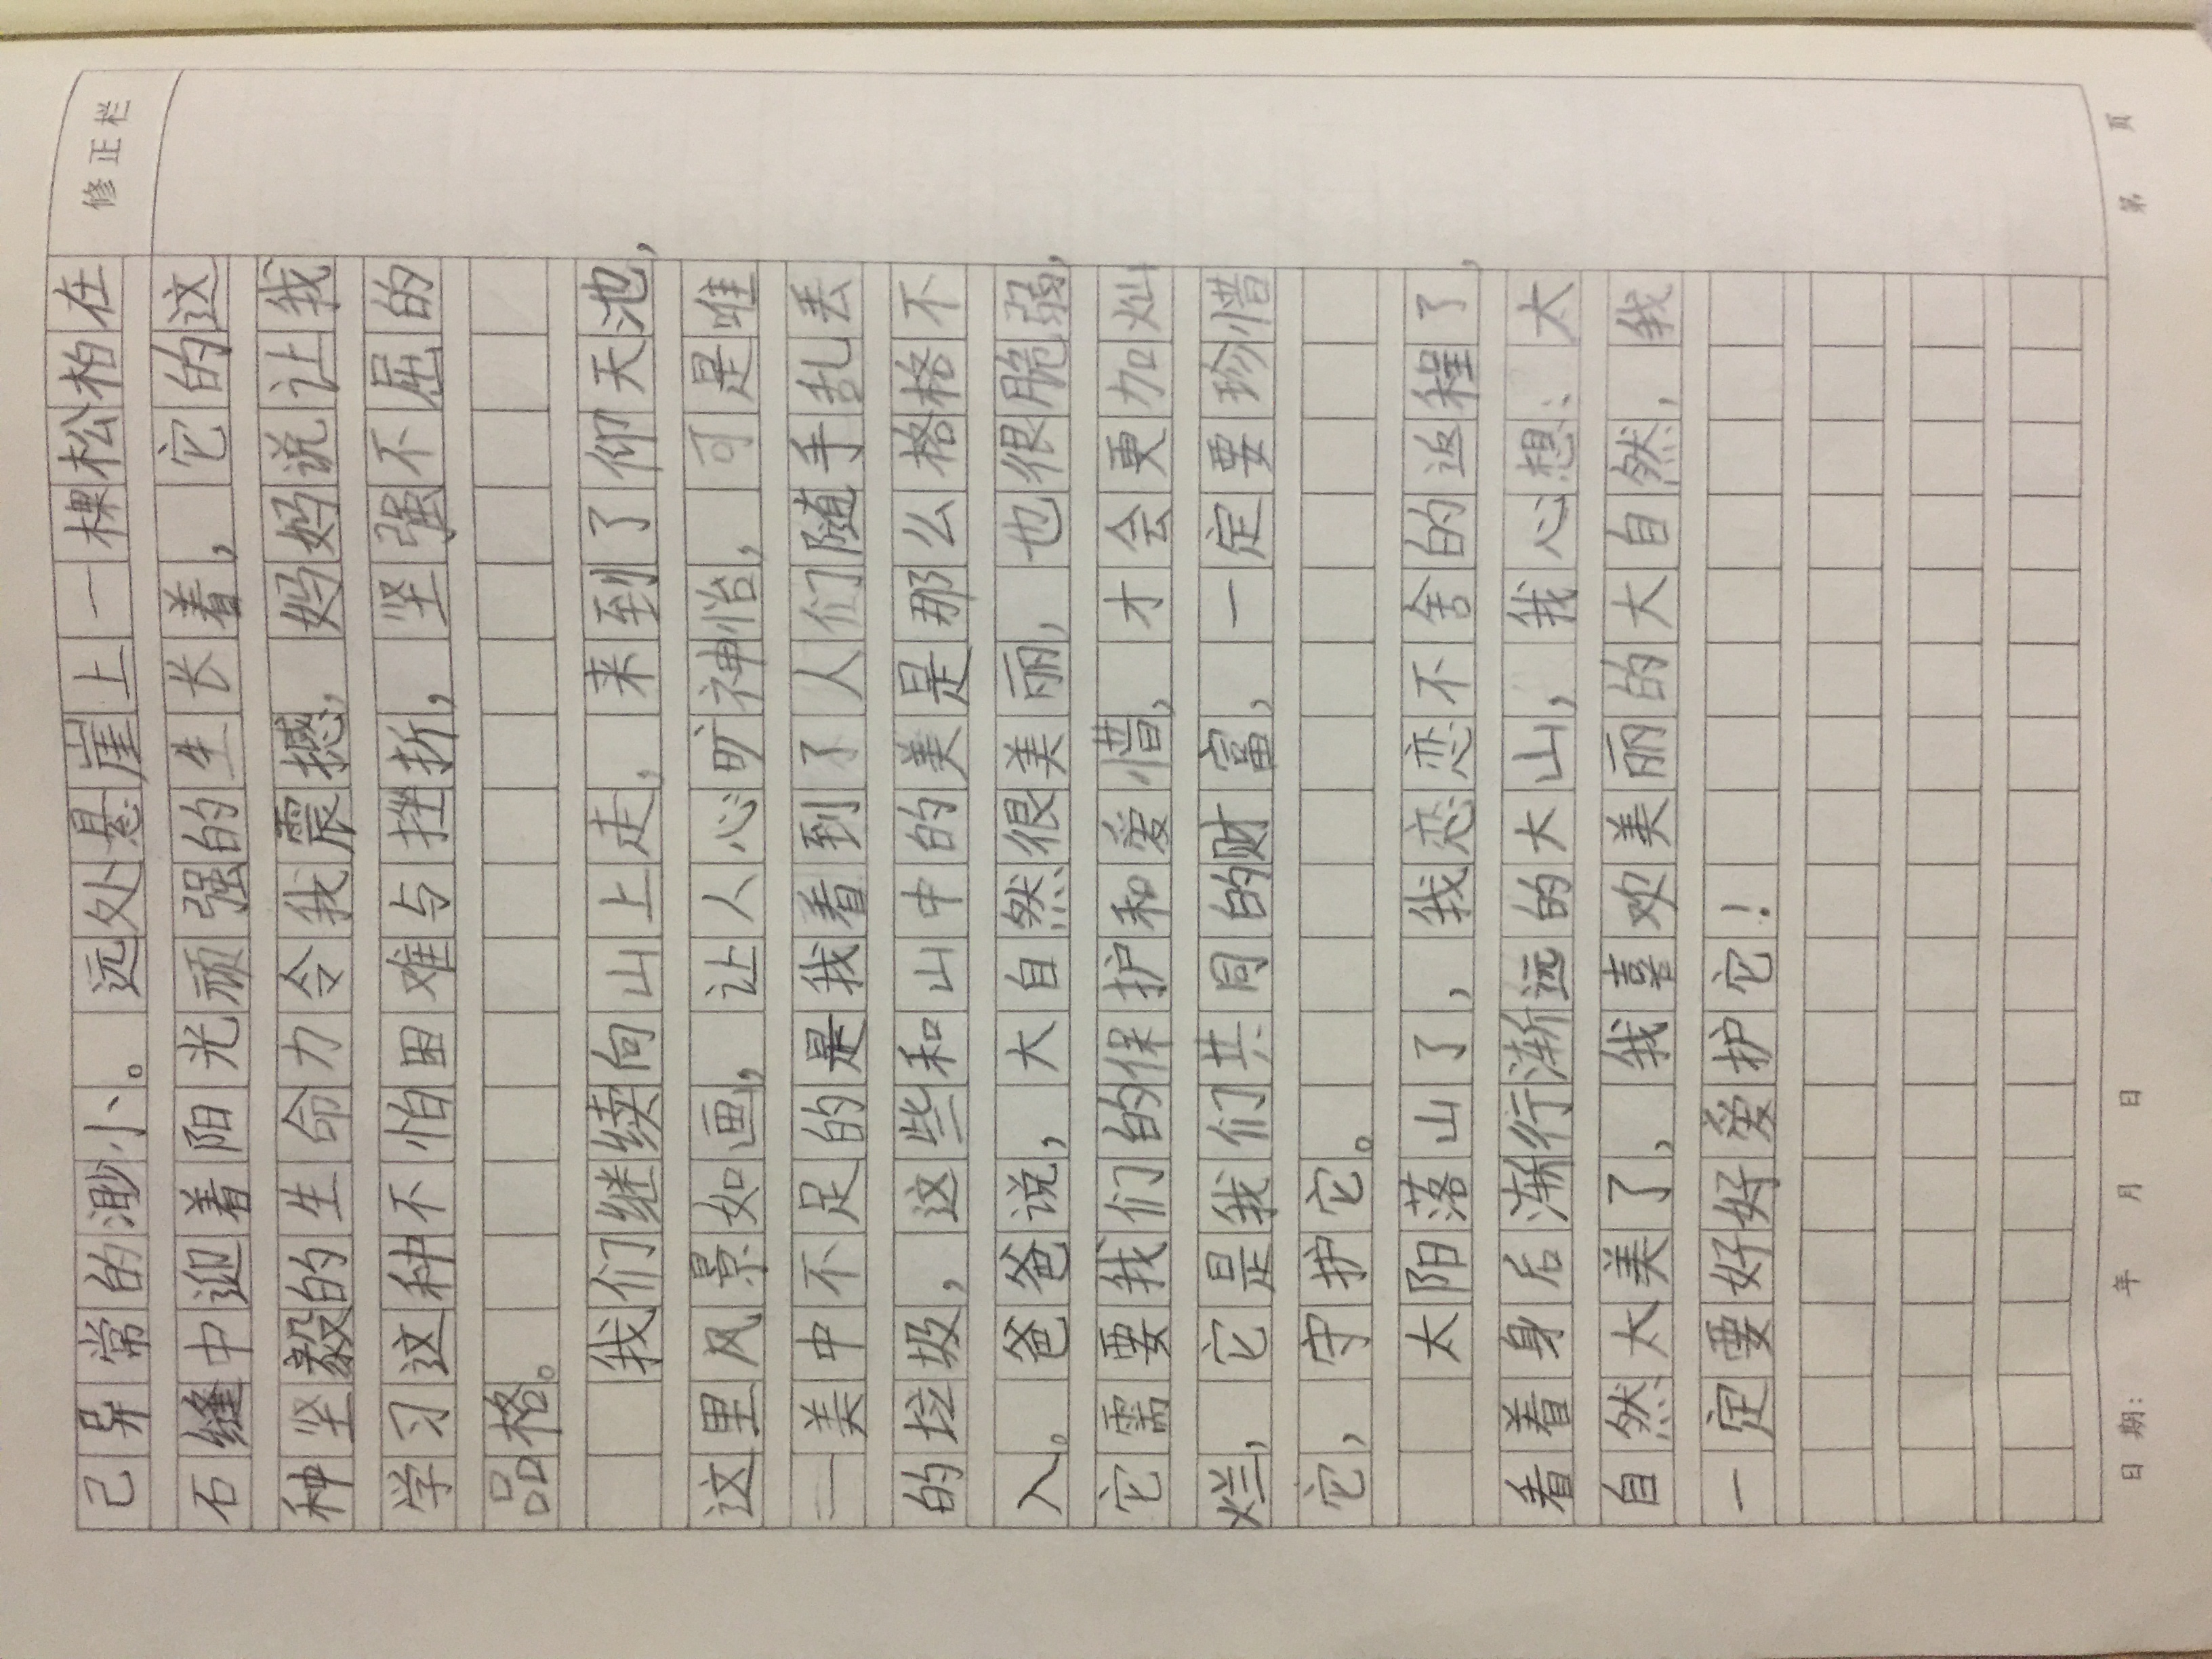 修正栏
己异常的渺小。远处悬崖上一棵松柏在
石缝中迎着阳光顽强的生长着，它的这
种坚毅的生命力令我震撼，妈妈说让我
学习这种不怕困难与挫折，坚强不屈的
品格。
我们继续向山上走，来到了仰天池，
这里风景如画，让人心旷神怡，可是唯
一美中不足的是我看到了人们随手乱丢
的垃圾，这些和山中的美是那么格格不
入。爸爸说，大自然很美丽，也很脆弱，
它需要我们的保护和爱惜，才会更加灿
烂，它是我们共同的财富，一定要珍惜
它，守护它。
太阳落山了，我恋恋不舍的返程了，
看着身后渐行渐远的大山，我心想：大
自然太美了，我喜欢美丽的大自然，我
一定要好好爱护它！
日期： 年 月 日 第 页